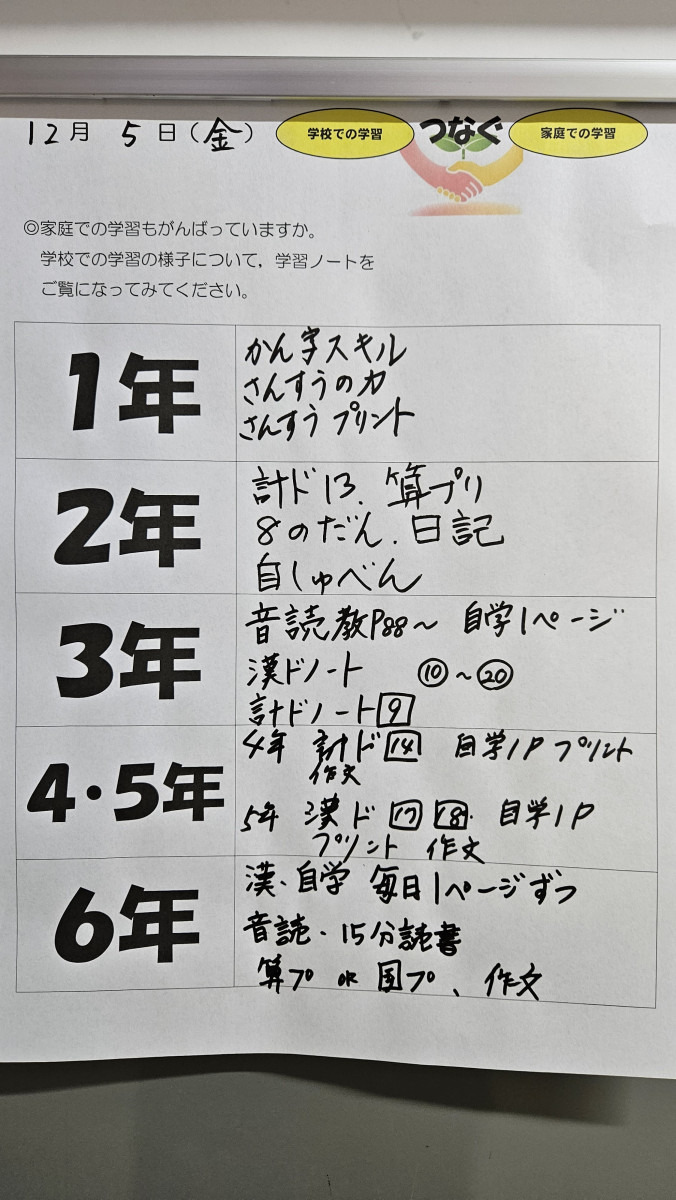 12月 5日(金) 学校での学習 つなぐ 家庭での学習
◎家庭での学習もがんばっていますか。
学校での学習の様子について，学習ノートを
ご覧になってみてください。
1年
かん字スキル
さんすうの力
さんすうプリント
2年
計ド13、算プリ
8のだん、日記
自しゅべん
3年
音読教P88～ 自学1ページ
漢ドノート ⑩～⑳
計ドノート9
4・5年
4年 計ド14 自学1P プリント
作文
5年 漢ド17 18. 自学1P
プリント 作文
6年
漢・自学 毎日1ページずつ
音読・15分読書
算プ or 国プ、作文